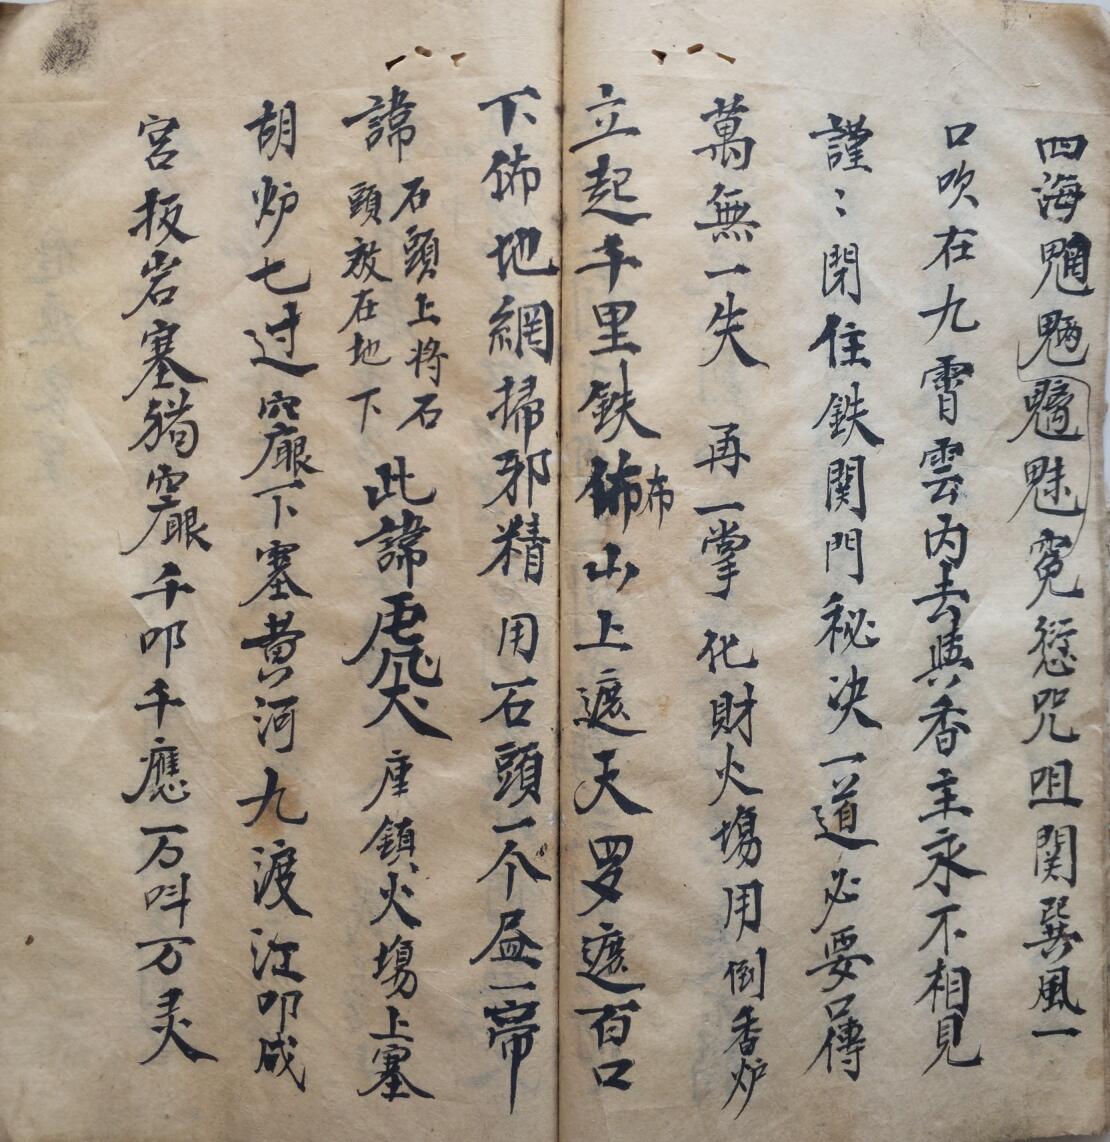 四海魍魎魑魅冤愆咒咀関巽風一
口吹在九霄雲内去與香主永不相見
謹〻閉住鉄関門秘决一道必要口傳
萬無一失 再一掌 化財火塲用倒香炉
立起千里鉄佈布山上遮天罗遮百口
下佈地網掃邪精 用石頭一个
諱 石頭上将石
頭放在地下
此諱 座鎮火塲上塞
胡炉七过穴下塞黄河九渡江叩成
宮扳岩塞千叩千應一万呌万灵